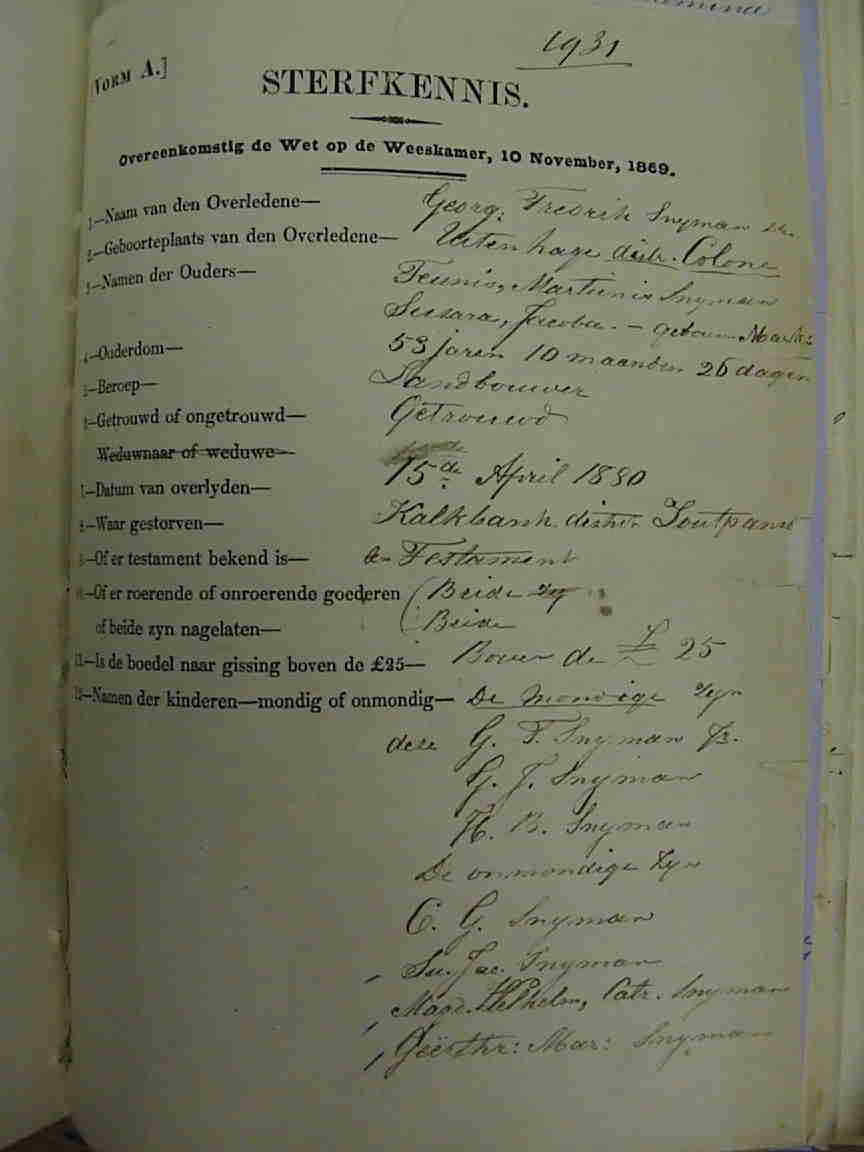 1931
[VORM A.]
STERFKENNIS.
Overeenkomstig de Wet op de Weeskamer, 10 November, 1869.
1—Naam van den Overledene— Georg: Fredrik Snyman
2—Geboorteplaats van den Overledene— Uitenhage distr. Colonie
3—Namen der Ouders— Teunis, Martinis Snyman
Susara, Jacoba. –
4—Ouderdom— 53 jaren 10 maanden 26 dagen
5—Beroep— Landbouwer
6—Getrouwd of ongetrouwd— Getrouwd
Weduwnaar of weduwe—
7—Datum van overlyden— 15de April 1880
8—Waar gestorven— Kalkbank distr. Zoutpans
9—Of er testament bekend is— Testament
10—Of er roerende of onroerende goederen Beide
of beide zyn nagelaten— Beide
11—Is de boedel naar gissing boven de £25— Boven de £ 25
12—Namen der kinderen—mondig of onmondig— De Mondige zyn
deze G. F. Snyman Jr.
G. J. Snyman
H. B. Snyman
De onmondige zyn
C. G. Snyman
Su. Jac. Snyman
Magd. Wilhelm, Catr. Snyman
Geërthr: Mar: Snyman